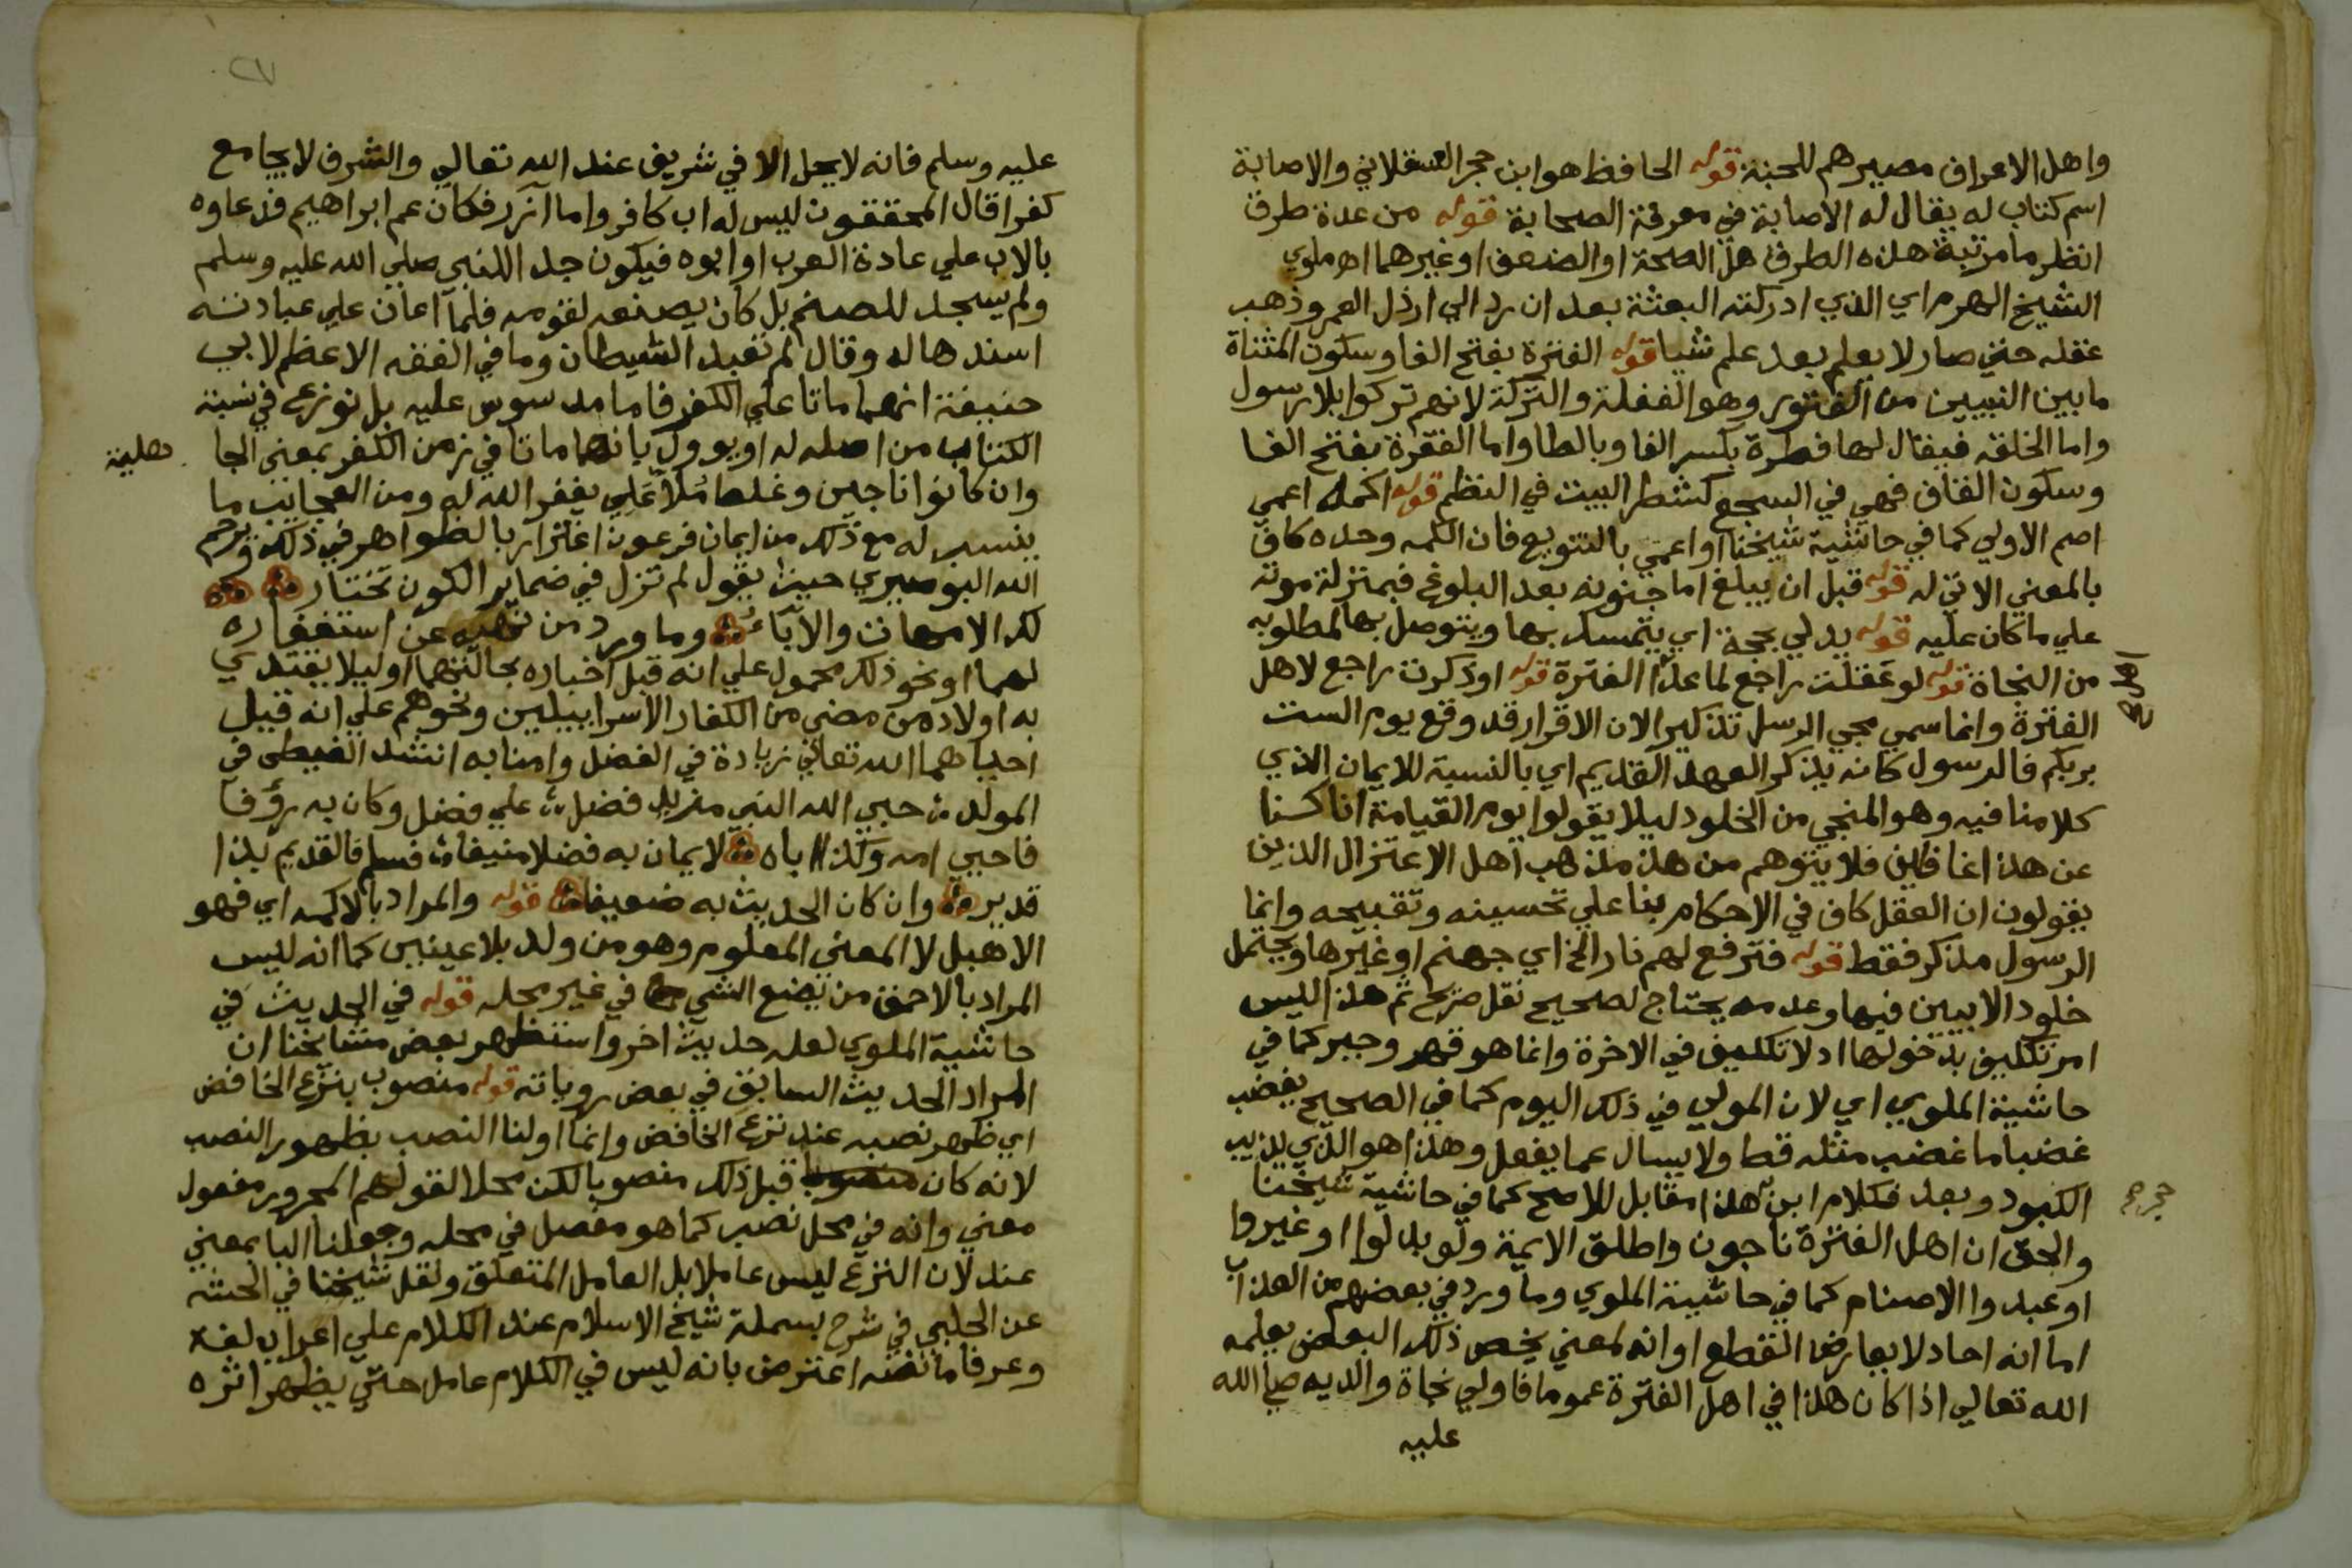 واهل الاعراف مصيرهم للجنة قوله الحافظ هو ابن حجر العسقلاني والاصابة
اسم كتاب له يقال له الاصابة في معرفة الصحابة قوله من عدة طرق
انظر ما مرتبة هذه الطرق هل الصحة او الضعف او غيرهما اه ملوي
الشيخ الهرم اي الذي ادركته البعثة بعد ان رد الي ارذل العمر وذهب
عقله حتي صار لا يعلم بعد علم شيا قوله الفترة بفتح الفا وسكون المثناة
ما بين النبيين من الفتور وهو الغفلة والتركة لانهم تركوا بلا رسول
واما الخلقه فيقال لها فطرة بكسر الفا وبالطا واما الفقرة بفتح الفا
وسكون القاف فهي في السجع كشطر البيت في النظم قوله اكمه اعمي
اصم الاولي كما في حاشية شيخنا او اعمي بالتنويع فان الكمه وحده كاف
بالمعني الاتي له قوله قبل ان يبلغ اما جنونه بعد البلوغ فبمنزلة موته
علي ما كان عليه قوله يدلي بحجة اي يتمسك بها ويتوصل بها لمطلوبه
من النجاة قوله لو عقلت راجع لما عدا الفترة قوله او ذكرت راجع لاهل
الفترة وانما سمي مجي الرسل تذكيرا لان الاقرار قد وقع يوم الست
بربكم فالرسول كانه يذكر العهد القديم اي بالنسبة للايمان الذي
كلامنا فيه وهو المنجي من الخلود ليلا يقولوا يوم القيامة انا كنا
عن هذا غافلين فلا يتوهم من هذا مذهب اهل الاعتزال الذين
يقولون ان العقل كاف في الاحكام بنا علي تحسينه وتقبيحه وانما
الرسول مذكر فقط قوله فترفع لهم نار الخ اي جهنم او غيرها ويحتمل
خلود الابيين فيها وعدمه يحتاج لصحيح نقل صريح ثم هذا ليس
امر تكليف بدخولها اد لا تكليف في الاخرة وانما هو قهر وجبر كما في
حاشية الملوي اي لان المولي في ذلك اليوم كما في الصحيح يغضب
غضبا ما غضب مثله قط ولا يسال عما يفعل وهذا هو الذي يذيب
الكبود وبعد فكلام ابن هذا مقابل للاصح كما في حاشية شيخنا
حجر صح
والحق ان اهل الفترة ناجون واطلق الايمة ولو بدلوا او غيروا
او عبدوا الاصنام كما في حاشية الملوي وما ورد في بعضهم من العذاب
اما انه احاد لا يعارض القطع او انه لمعني يخص ذلك البعض يعلمه
الله تعالي اذا كان هذا في اهل الفترة عموما فاولي نجاة والديه صلي الله
عليه
٢٧
عليه وسلم فانه لا يحل الا في شريف عند الله تعالي والشرف لا يجامع
كفرا قال المحققون ليس له اب كافر واما آزر فكان عم ابراهيم فدعاوه
بالاب علي عادة العرب او ابوه فيكون جد اللنبي صلي الله عليه وسلم
ولم يسجد للصنم بل كان يصنعه لقومه فلما اعان علي عبادته
اسندها له وقال لم تعبد الشيطان وما في الفقه الاعظم لابي
حنيفة انهما ماتا علي الكفر فاما مدسوس عليه بل نوزع في نسبة
الكتاب من اصله له او يوول بانهما ماتا في زمن الكفر بمعني الجا
هلية
وان كانوا ناجين وغلط ملا علي يغفر الله له ومن العجايب ما
ينسب له مع ذلك من ايمان فرعون اغترار بالظواهر في ذلك ويرحم
الله البوصيري حيث يقول لم تزل في ضماير الكون تختار
لك الامهات والاباء وما ورد من نهيه عن استغفاره
لهما او نحو ذلك محمول علي انه قبل اخباره بحالتهما او ليلا يقتدي
به اولاده من مضي من الكفار الاسراييليين ونحوهم علي انه قيل
احياهما الله تعالي زيادة في الفضل وامنا به انشد الغيطي في
المولد حبي الله النبي مزيد فضل علي فضل وكان به رؤفا
فاحيي امه وكذا اباه لايمان به فضلا منيفا فسلم فالقديم بذا
قدير وان كان الحديث به ضعيفا قوله والمراد بالاكمه اي فهو
الاهبل لا المعني المعلوم وهو من ولد بلا عينين كما انه ليس
المراد بالاحمق من يضع الشي في غير محله قوله في الحديث في
حاشية الملوي لعله حديث اخر واستظهر بعض مشايخنا ان
المراد الحديث السابق في بعض روياته قوله منصوب بنزع الخافض
اي ظهر نصبه عند نزع الخافض وانما اولنا النصب بظهور النصب
لانه كان قبل ذلك منصوبا لكن محلا لقولهم المجرور مفعول
معني وانه في محل نصب كما هو مفصل في محله وجعلنا البا بمعني
عند لان النزع ليس عاملا بل العامل المتعلق ونقل شيخنا في الحشه
عن الحلبي في شرح بسملة شيخ الاسلام عند الكلام علي اعراب لغة
وعرفا ما نصه اعترض بانه ليس في الكلام عامل حتي يظهر اثره